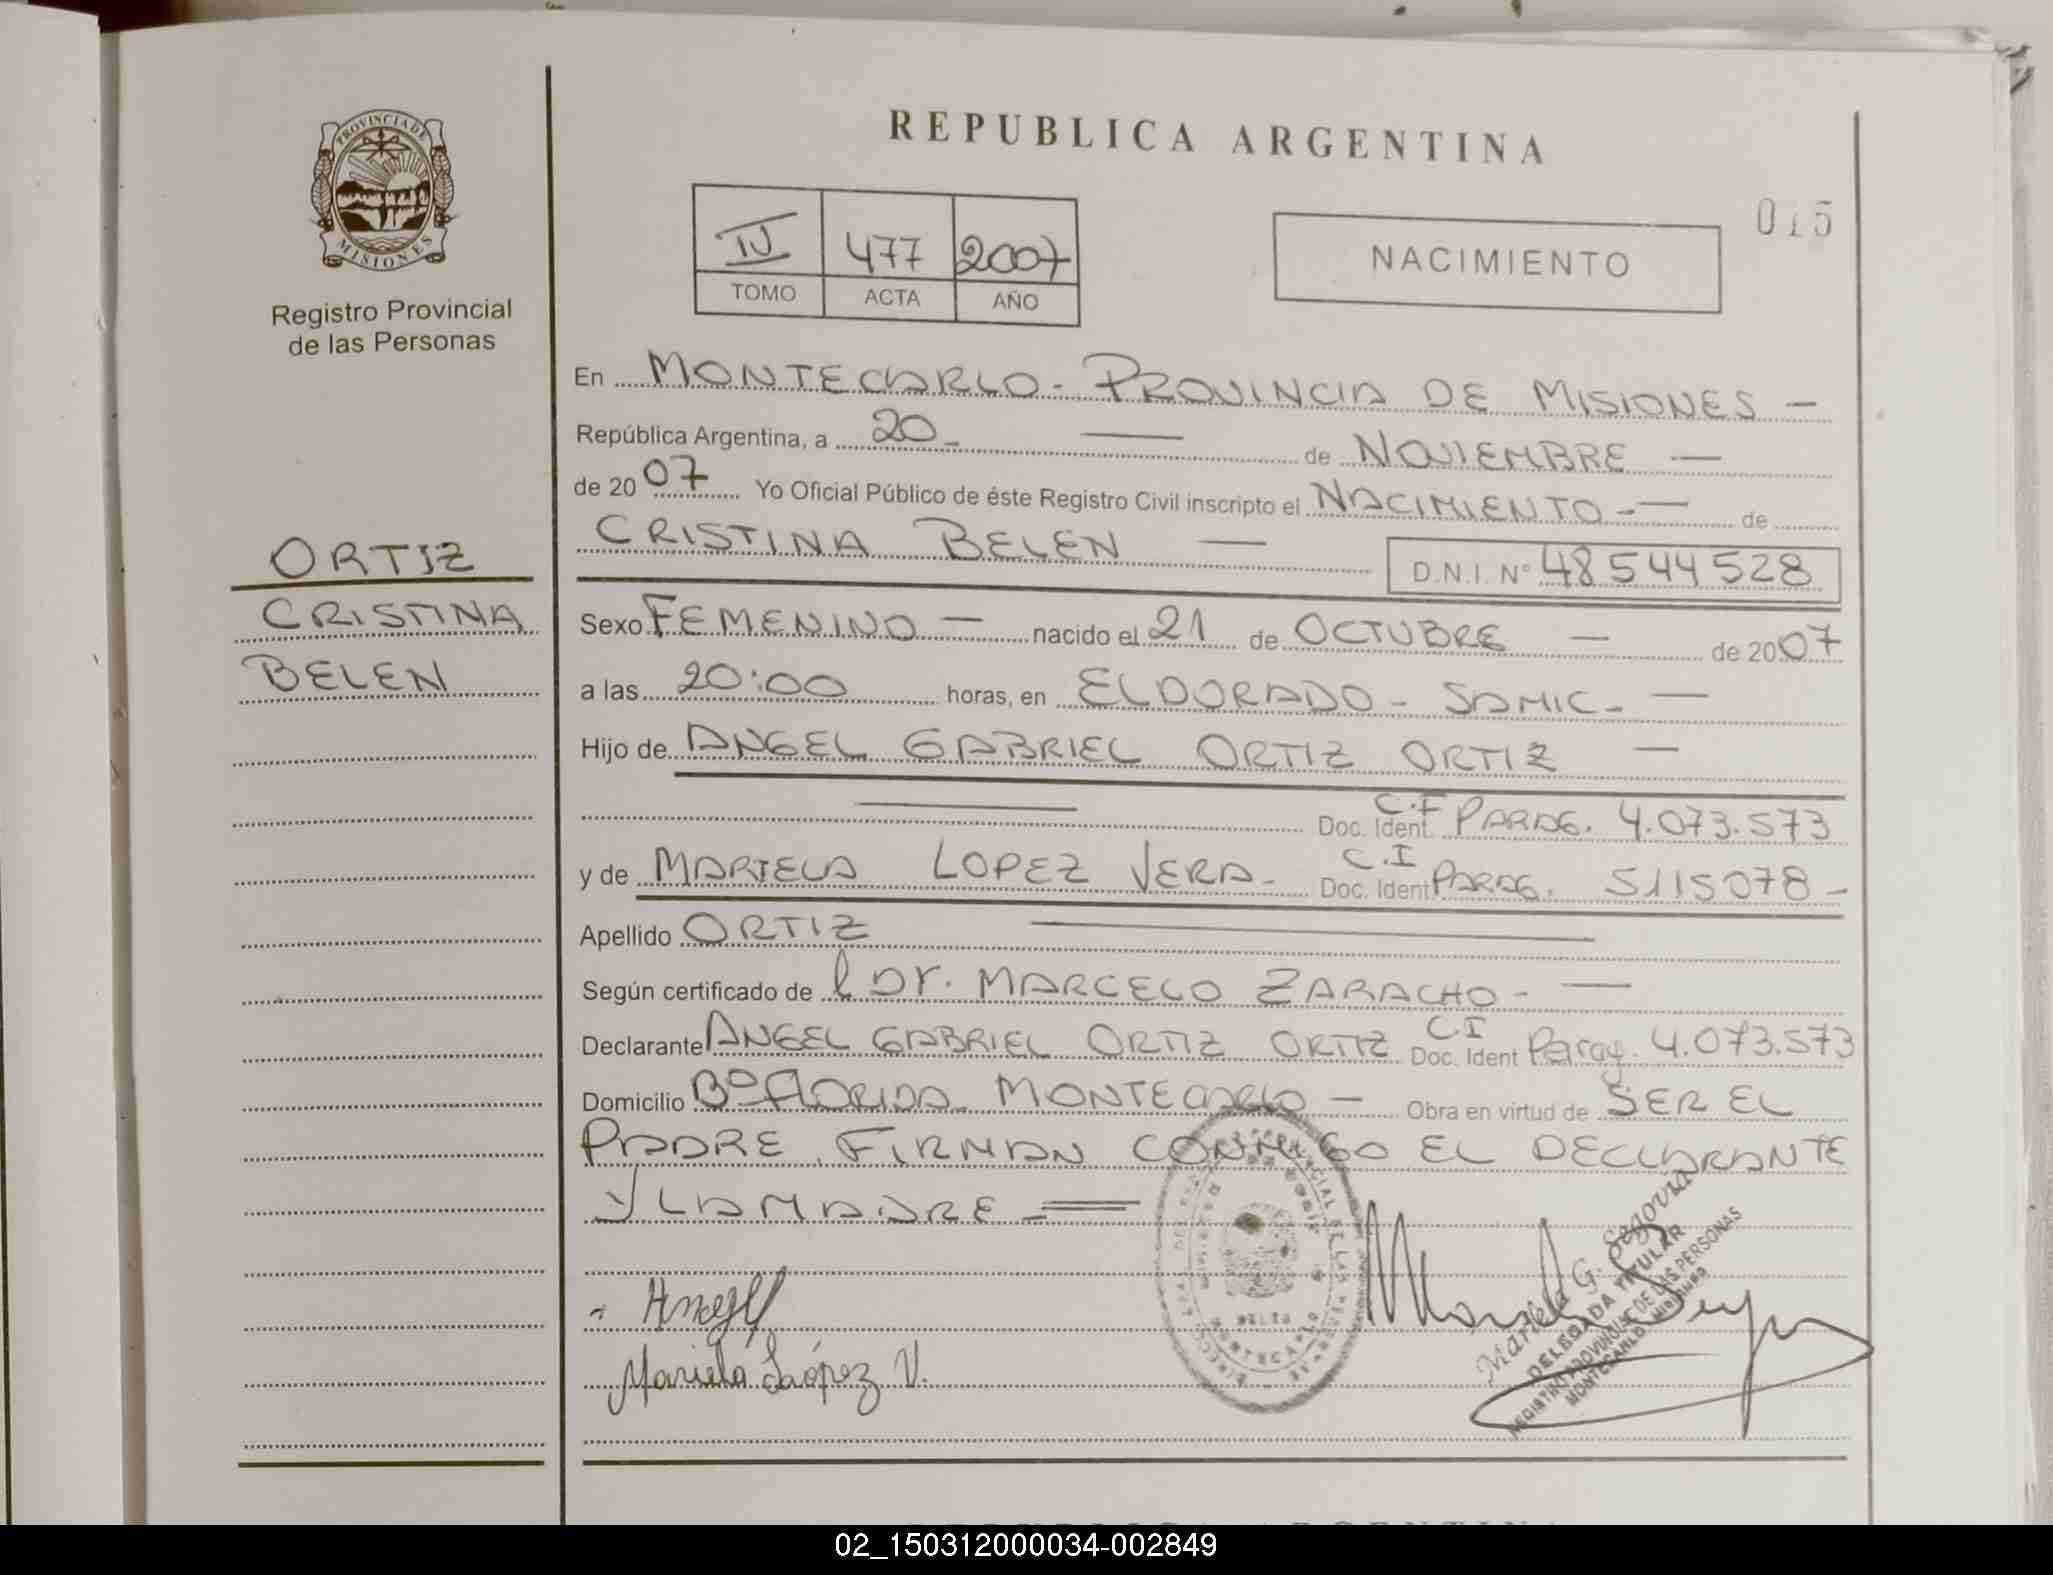 PROVINCIA DE
MISIONES
Registro Provincial
de las Personas
ORTIZ
CRISTINA
BELEN
REPUBLICA ARGENTINA
015
IV 477 2007
TOMO ACTA AÑO
NACIMIENTO
En MONTECARLO - PROVINCIA DE MISIONES -
República Argentina, a 20 - de NOVIEMBRE -
de 2007 Yo Oficial Público de éste Registro Civil inscripto el NACIMIENTO - de
CRISTINA BELEN - D.N.I. Nº 48544528
Sexo FEMENINO - nacido el 21 de OCTUBRE - de 2007
a las 20:00 horas, en ELDORADO - SAMIC -
Hijo de ANGEL GABRIEL ORTIZ ORTIZ -
Doc. Ident. C.I PARAG. 4.073.573
y de MARIELA LOPEZ VERA - Doc. Ident C.I PARAG. 5115078 -
Apellido ORTIZ
Según certificado de l Dr. MARCELO ZARACHO -
Declarante ANGEL GABRIEL ORTIZ ORTIZ Doc. Ident CI Parag. 4.073.573
Domicilio Bº FLORIDA MONTECARLO - Obra en virtud de SER EL
PADRE. FIRMAN CONMIGO EL DECLARANTE
Y LA MADRE
Mariela López V.
Mariela G. Segovia
DELEGADA TITULAR
REGISTRO PROVINCIAL DE LAS PERSONAS
MONTECARLO MISIONES
02_150312000034-002849